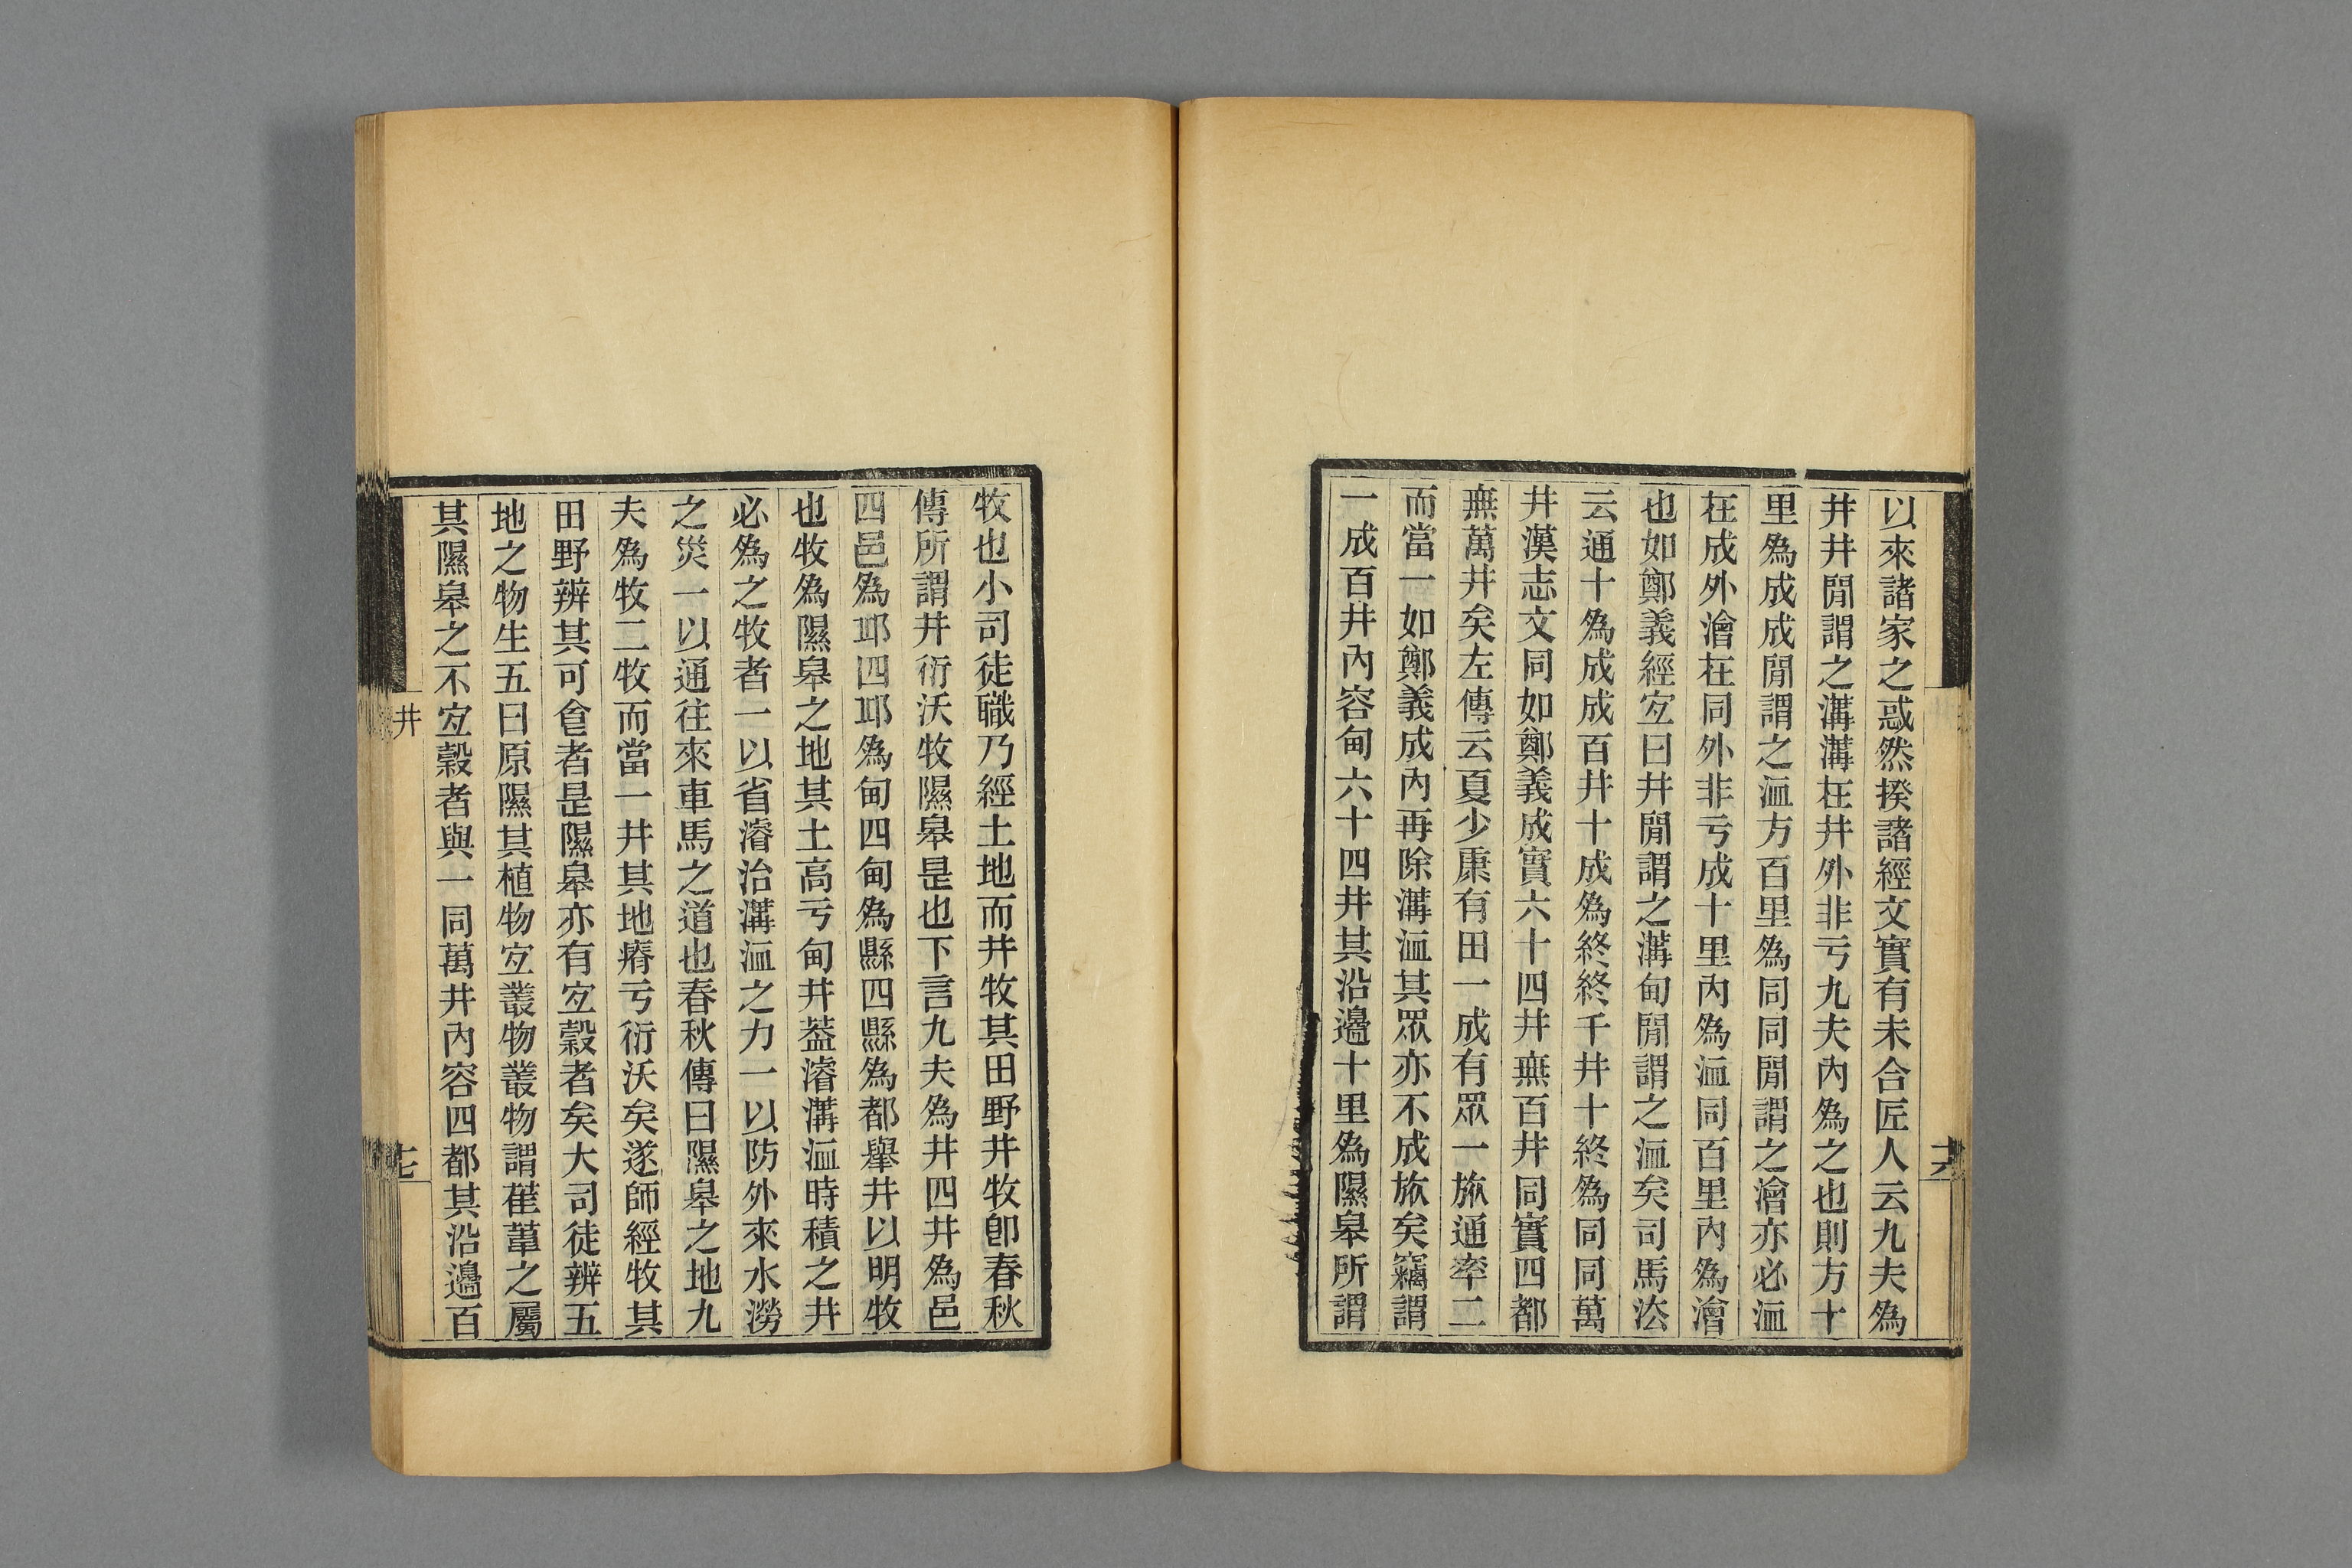 以來諸家之惑然揆諸經文實有未合匠人云九夫爲
井井閒謂之溝溝在井外非亏九夫內爲之也則方十
里爲成成閒謂之洫方百里爲同同閒謂之澮亦必洫
在成外澮在同外非亏成十里內爲洫同百里內爲澮
也如鄭義經宐曰井閒謂之溝甸閒謂之洫矣司馬法
云通十爲成成百井十成爲終終千井十終爲同同萬
井漢志文同如鄭義成實六十四井無百井同實四都
無萬井矣左傳云夏少康有田一成有眾一旅通率二
而當一如鄭義成內再除溝洫其眾亦不成旅矣竊謂
一成百井內容甸六十四井其沿邊十里爲隰皋所謂
六
牧也小司徒職乃經土地而井牧其田野井牧卽春秋
傳所謂井衍沃牧隰皋是也下言九夫爲井四井爲邑
四邑爲邱四邱爲甸四甸爲縣四縣爲都舉井以明牧
也牧爲隰皋之地其土高亏甸井葢濬溝洫時積之井
必爲之牧者一以省濬治溝洫之力一以防外來水澇
之災一以通往來車馬之道也春秋傳曰隰皋之地九
夫爲牧二牧而當一井其地瘠亏衍沃矣遂師經牧其
田野辨其可食者是隰皋亦有宐穀者矣大司徒辨五
地之物生五曰原隰其植物宐叢物叢物謂萑葦之屬
其隰皋之不宐穀者與一同萬井內容四都其沿邊百
井
七